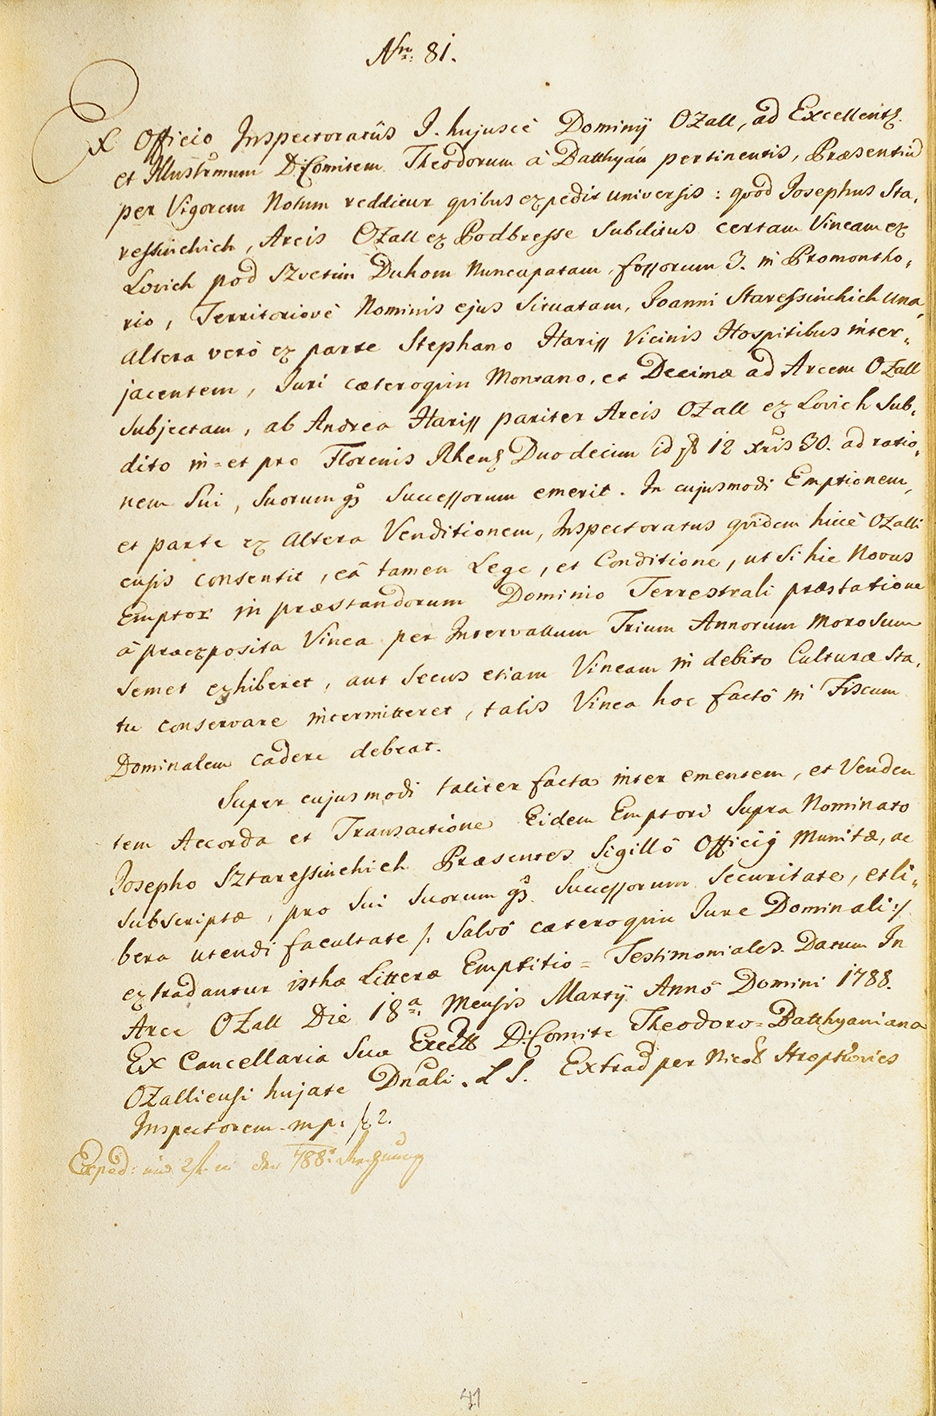 Nro: 81.
Ex Officio Inspectoratûs I. hujusce Dominÿ Ozall, ad Excellentss.
et Illustrmum D: Comitem Theodorum à Batthyán pertinentis, Præsentiũ
per Vigorem Notum redditur quibus expedit universis: quod Josephus Sta,
ressinchich, Arcis Ozall ex Podbresse Subditus certam Vineam ex
Lovich pod Szvetim Duhom Nuncupatam, fossorum 3. in Promontho,
rio, Territoriove Nominis ejus Situatam, Joanni Staressinchich una,
altera verò ex parte Stephano Hariss Vicinis Hospitibus inter,,
jacentem, Juri cæteroquin Montano, et Decimæ ad Arcem Ozall
Subjectam, ab Andrea Hariss pariter Arcis Ozall ex Lovich Sub,
dito in=et pro Florenis Rhens Duodecim id st 12 xris 30. ad ratio,
nem Sui, Suorumqs Successorum emerit. In cujusmodi Emptionem,
et parte ex altera Venditionem, Inspectoratus quidem hicce Ozalli
ensis consentit, eâ tamen Lege, et Conditione, ut Si hic Novus
Emptor in præstandorum Dominio Terrestrali præstatione
à præexposita Vinea per Intervallum Trium Annorum Morosum
Semet exhiberet, aut Secus etiam Vineam in debito Culturæ Sta,
tu conservare intermitteret, talis Vinea hoc factô in Fiscum
Dominalem cadere debeat.
Super cujusmodi taliter facta inter ementem, et Venden
tem Accorda et Transactione Eidem Emptori Supra Nominato
Josepho Sztaressinchich Præsentes Sigillô Officÿ Munitæ, ac
Subscriptæ, pro Sui Suorumqs Successorum Securitate, et li,,
bera utendi facultate /: Salvô cæteroquin Jure Dominali :/
extradantur isthæ Litteræ Emptitio = Testimoniales. Datum In
Arce Ozall Die 18a. Mensis Martÿ Annô Domini 1788.
Ex Cancellaria Suæ Excell D: Comite Theodoro = Batthyaniana
Ozalliensi hujate Dnali. L S. Extrad per Nicol Stropkovics
Inspectorem mp: f 2.
Exped: 2 f. in der 788r Rechnung
41